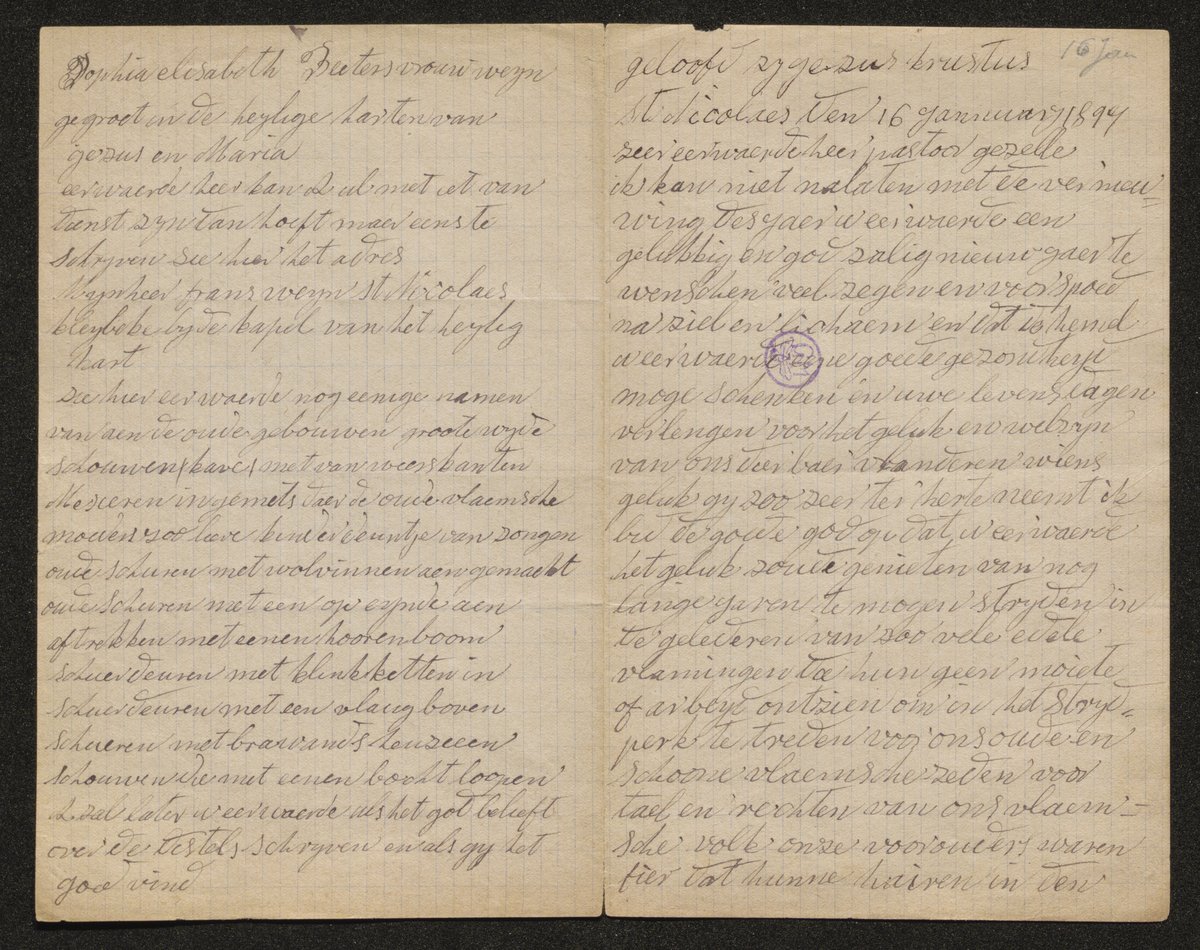 Sophia elisabeth Peeters vrouw weyn
gegroet in de heylige harten van
gezus en Maria
eerwaerde heer kan L ul met iet van
tienst zyn tan hoeft maer eens te
schryven zie hier het adres
Mynheer frans weyn st Nicolaes
kleybeke by de kapel van het heylig
hart
zie hier eerwaerde nog eenige namen
van aen de oude gebouwen groote wyde
schouwen (kave) met van weers kanten
Mesieren ingemets daer de oude vlaemsche
moeders zoo lieve kinder deuntje van zongen
oude schuren met wolvinnen aen gemaekt
oude schuren met een op eynde aen
aftrekken met eenen hoorenboom
schuerdeuren met klinkketten in
schuerdeuren met een vlaug boven
schueren met brawands heuzeeen
schouwen die met eenen bocht loopen
L zal later u eerwaerde als het got belieft
over de testels schryven en als gy het
goed vind
16 Jan
geloofd zy gezus krustus
st Nicolaes den 16 gannuary 1897
zeer eerwaerde heer pastoor gezelle
ik kan niet nalaten met de vernieu=
wing des gaer u eerwaerde een
gelukkig en god zalig nieuw gaer te
wenschen veel zegen en voorspoed
na ziel en lichaem en dat de hemel
u eerwaerde eene goede gezontheyd
moge schenken en uwe levens dagen
verlengen voor het geluk en welzyn
van ons dierbaer vlanderen wiens
geluk gy zoo zeer ter herte neemt ik
bid de goede god op dat u eerwaerde
het geluk zoude genieten van nog
lange garen te mogen stryden in
te gelederen van zoo vele edele
vlamingen die hun geen moiete
of arbeyt ontzien om in het stryd=
perk te treden voor ons oude en
schoone vlaemsche zeden voor
tael en rechten van ons vlaem=
sche volk onze voorouders waren
fier dat hunne hairen in den